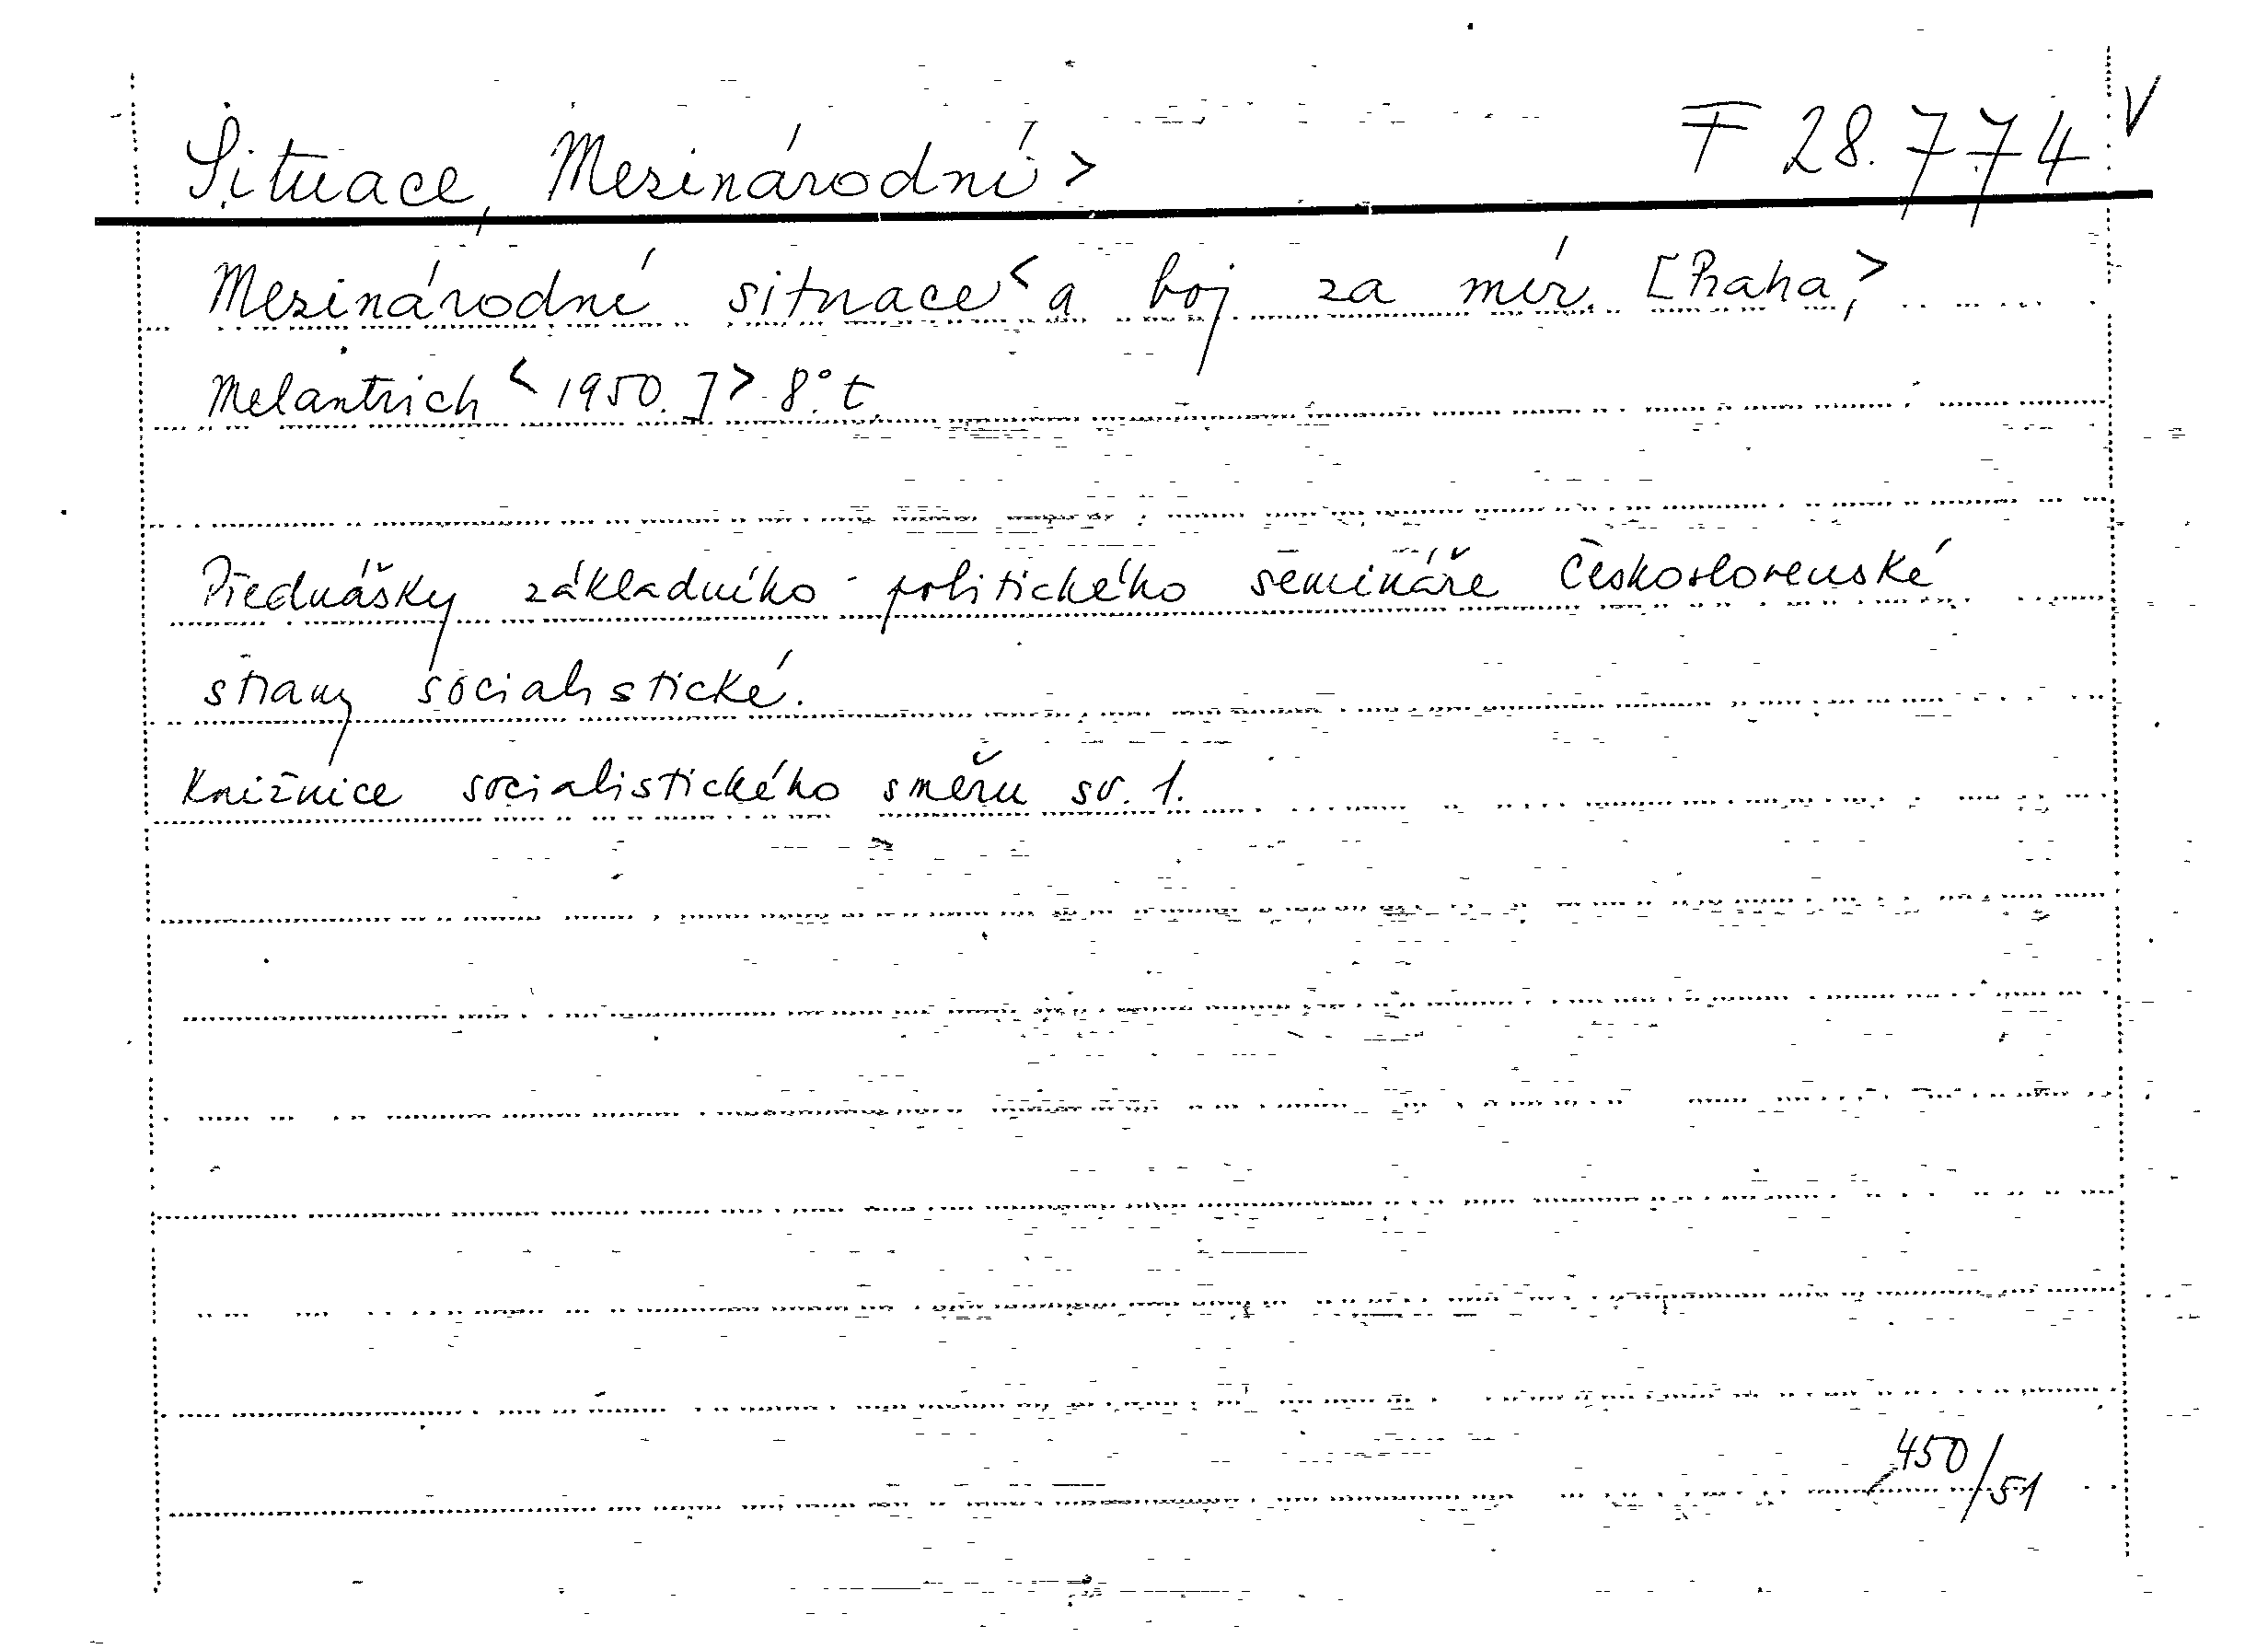 Situace, Mezinárodní > F 28.774 V
Mezinárodní situace < a boj za mír. [Praha, >
Melantrich < 1950.] > 8° t.
Přednášky základního politického semináře Československé
strany socialistické.
Knižnice socialistického směru sv. 1.
450/51